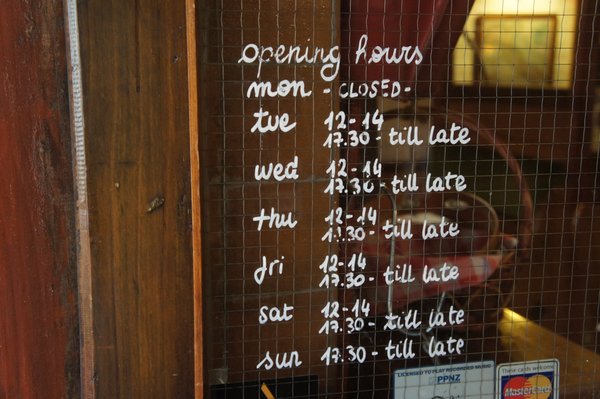 opening hours
mon - CLOSED -
tue 12-14
17.30 - till late
wed 12-14
17.30 - till late
thu 12-14
17.30 - till late
fri 12-14
17.30 - till late
sat 12-14
17.30 - till late
sun 17.30 - till late
LICENSED TO PLAY RECORDED MUSIC
PPNZ
These cards welcome
MasterCard